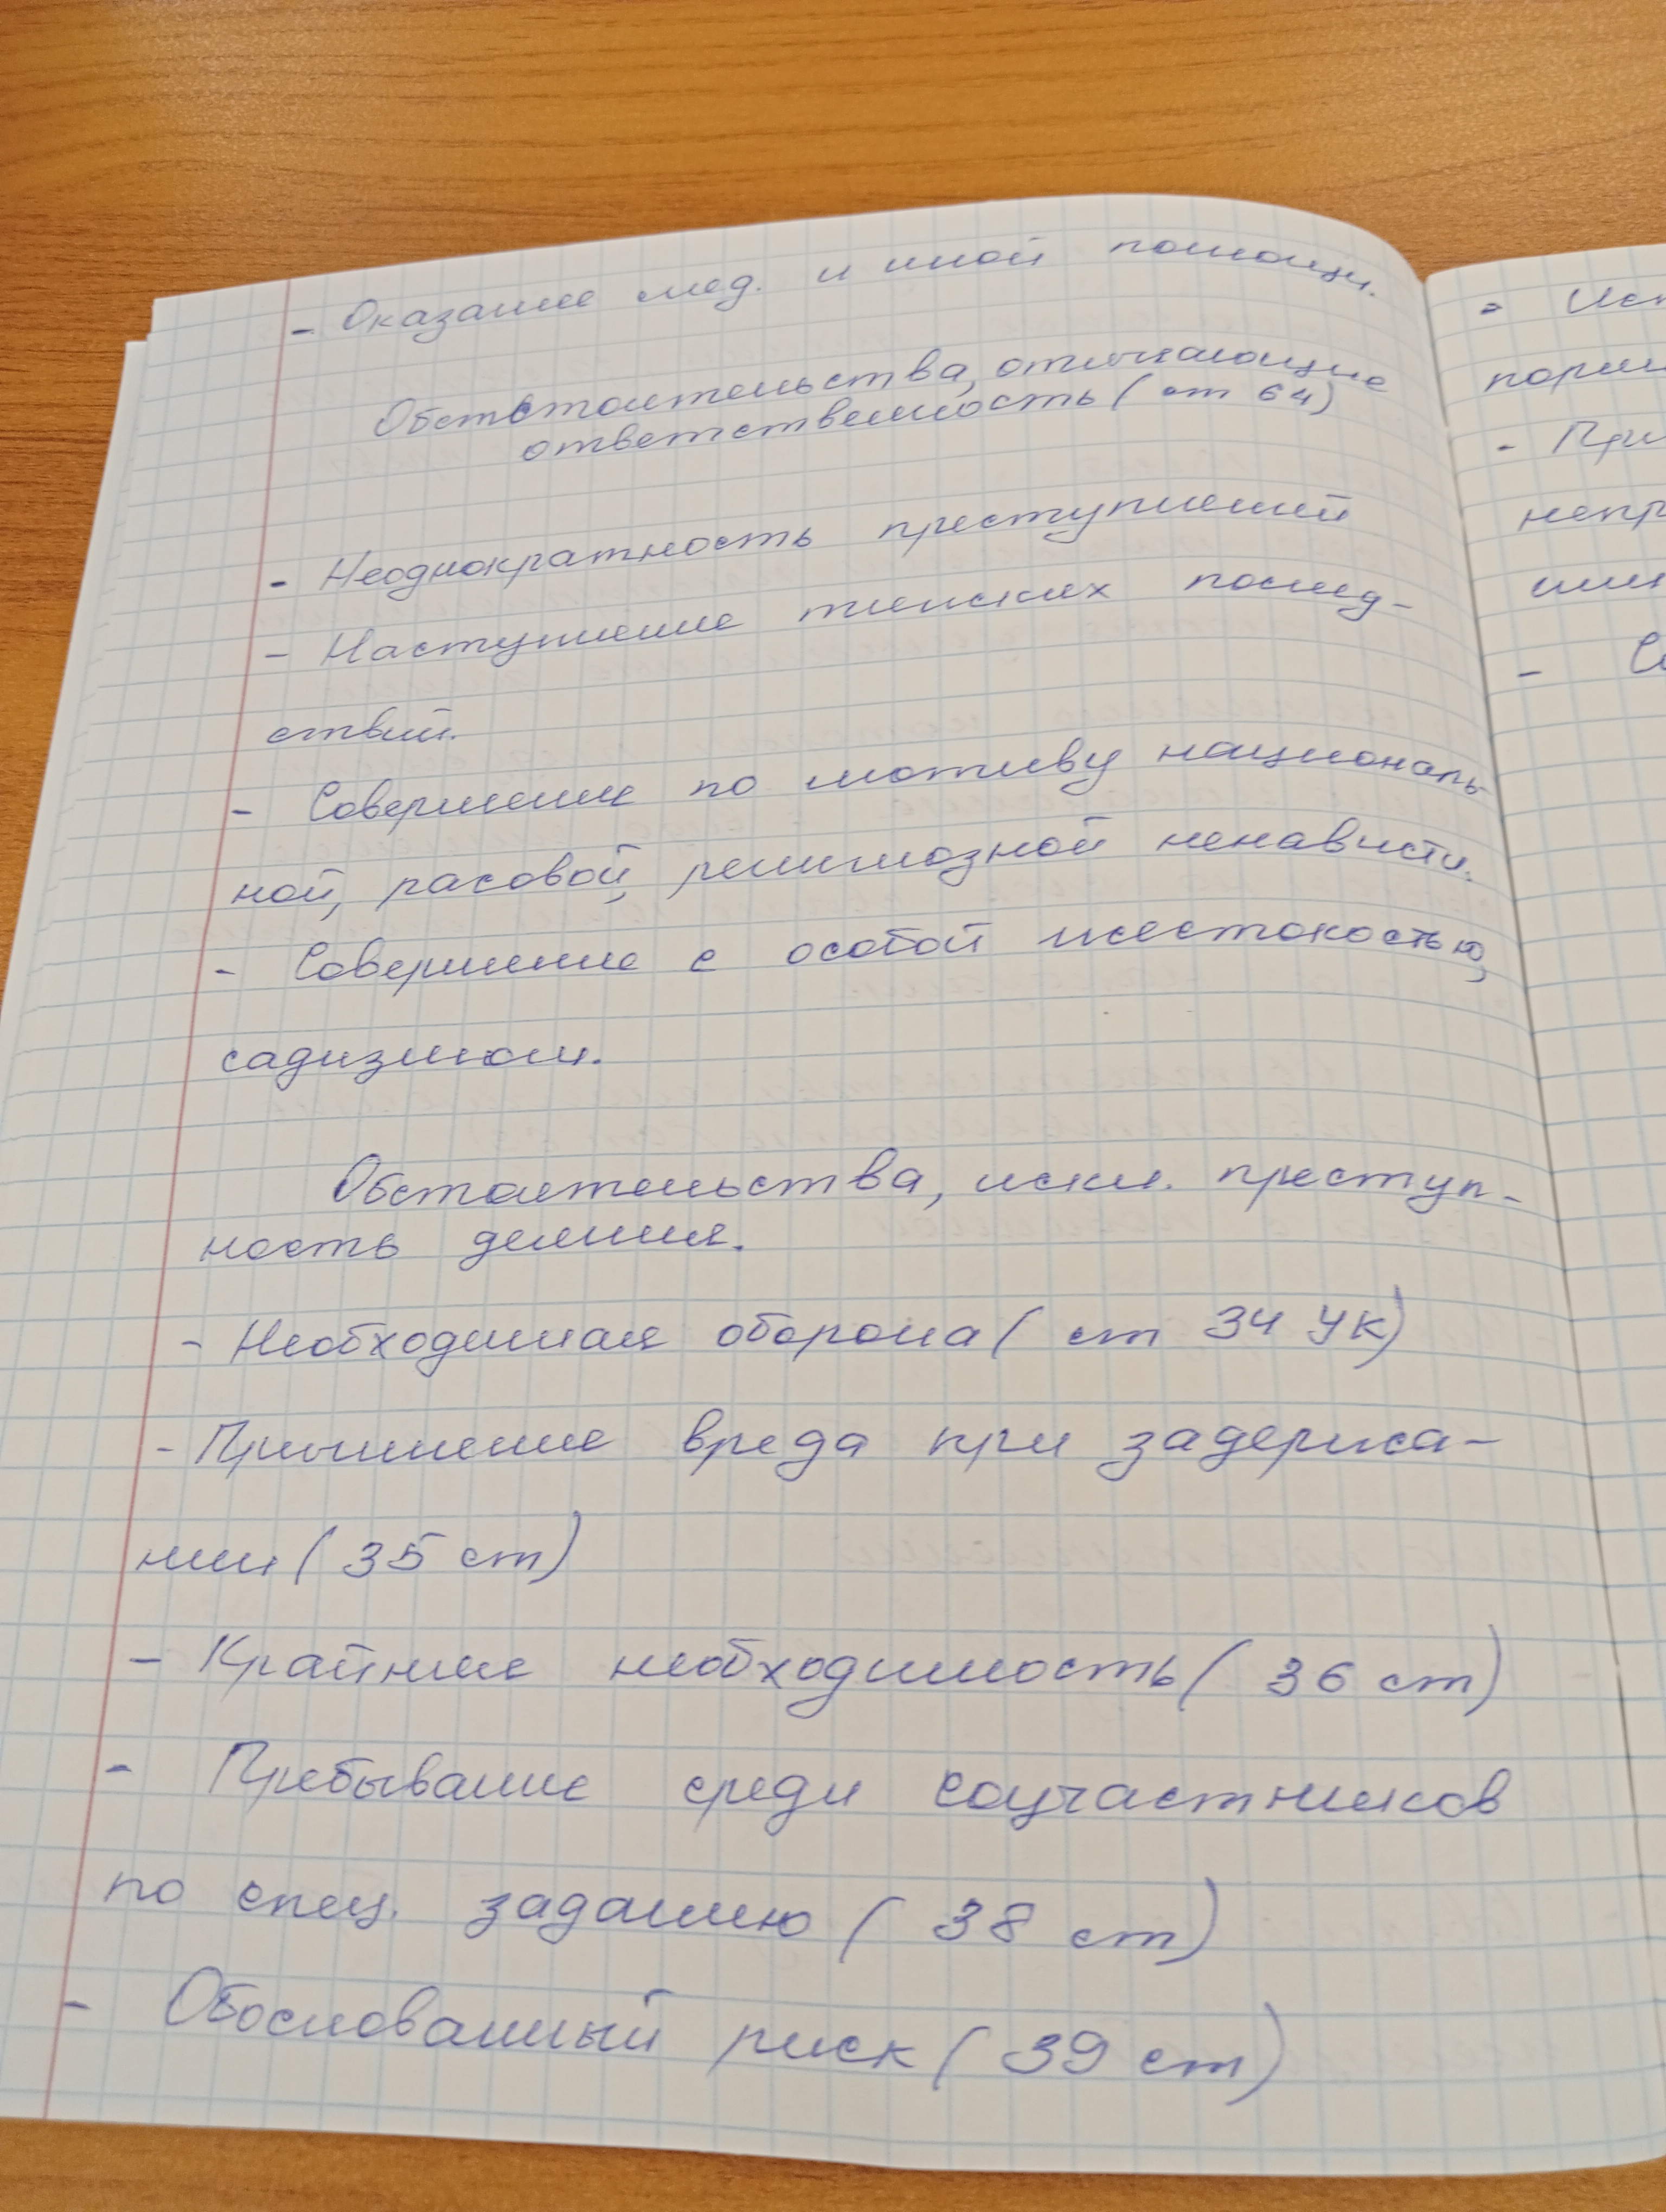 - Оказание мед. и иной помощи.
Обстоятельства, отягчающие
ответственность ( ст 64)
- Неоднократность преступлений
- Наступление тяжских послед-
ствий.
- Совершение по мотиву националь-
ной, расовой, религиозной ненависти.
- Совершение с особой жестокостью,
садизмом.
Обстоятельства, искл. преступ-
ность деяния.
- Необходимая оборона ( ст 34 УК)
- Причинение вреда при задержа-
нии ( 35 ст)
- Крайние необходимость ( 36 ст)
- Пребывание среди соучастников
по спец. заданию ( 38 ст)
- Обоснованный риск ( 39 ст)
- При
непр